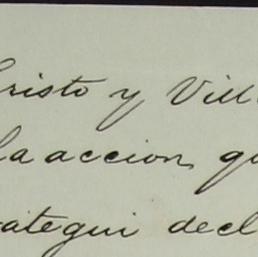 Cristo y Vill
la accion, qu
ategui decl